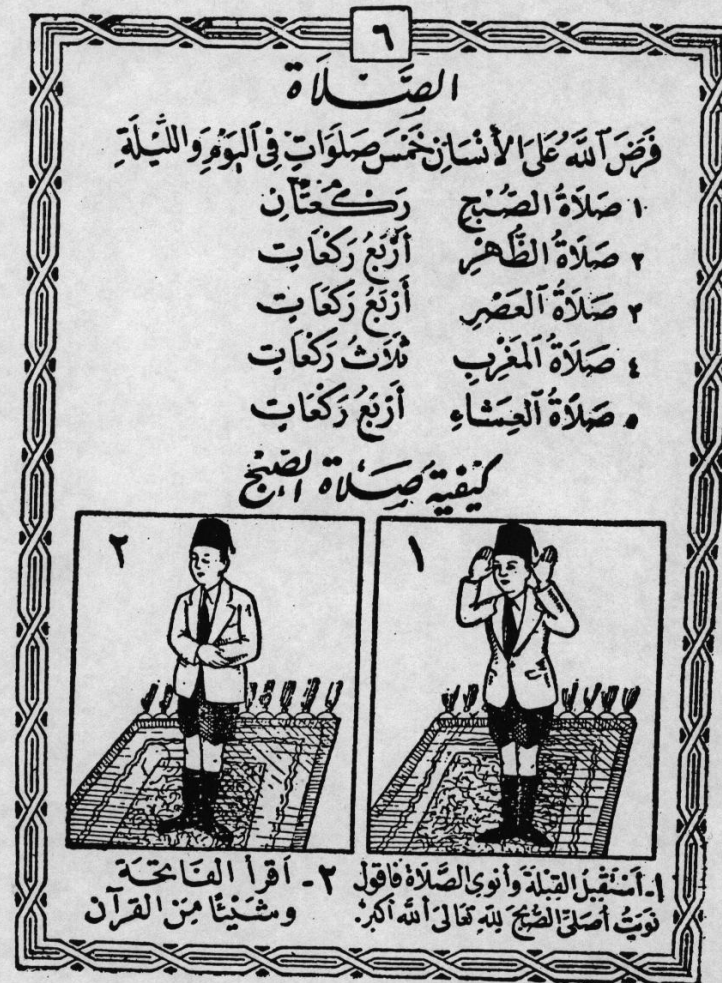 ٦
الصَّلَاة
فَرَضَ ٱللَّهُ عَلَى الأنْسَانِ خَمْسَ صَلَوَاتٍ فِي ٱليَوْمِ وَاللَّيْلَةِ
١ صَلَاةُ الصُّبْحِ رَكْعَتَانِ
٢ صَلَاةُ الظُّهْرِ أَرْبَعُ رَكَعَاتٍ
٣ صَلَاةُ ٱلعَصْرِ أَرْبَعُ رَكَعَاتٍ
٤ صَلَاةُ ٱلمَغْرِبِ ثَلَاثُ رَكَعَاتٍ
٥ صَلَاةُ ٱلعِشَاءِ أَرْبَعُ رَكَعَاتٍ
كَيْفِيةُ صَلَاةِ الصُّبْحِ
١
٢
١- أَسْتَقْبِلُ القِبْلَةَ وأنوي الصَّلَاةَ فأقول
نَوَيْتُ أصَلِّي الصُّبْحَ لِلَّهِ تَعَالَى أَللَّه أَكبَرُ.
٢- أَقرأ الفَاتِحَة
وشَيْئًا مِنَ القرآن